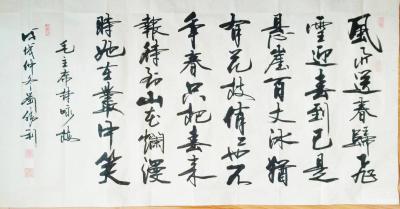 風雨送春歸飛
雪迎春到已是
懸崖百丈冰猶
有花枝俏俏不
争春只把春来
報待到山花爛漫
時她在叢中笑
毛主席詩咏梅
戊戌仲冬劉俊利